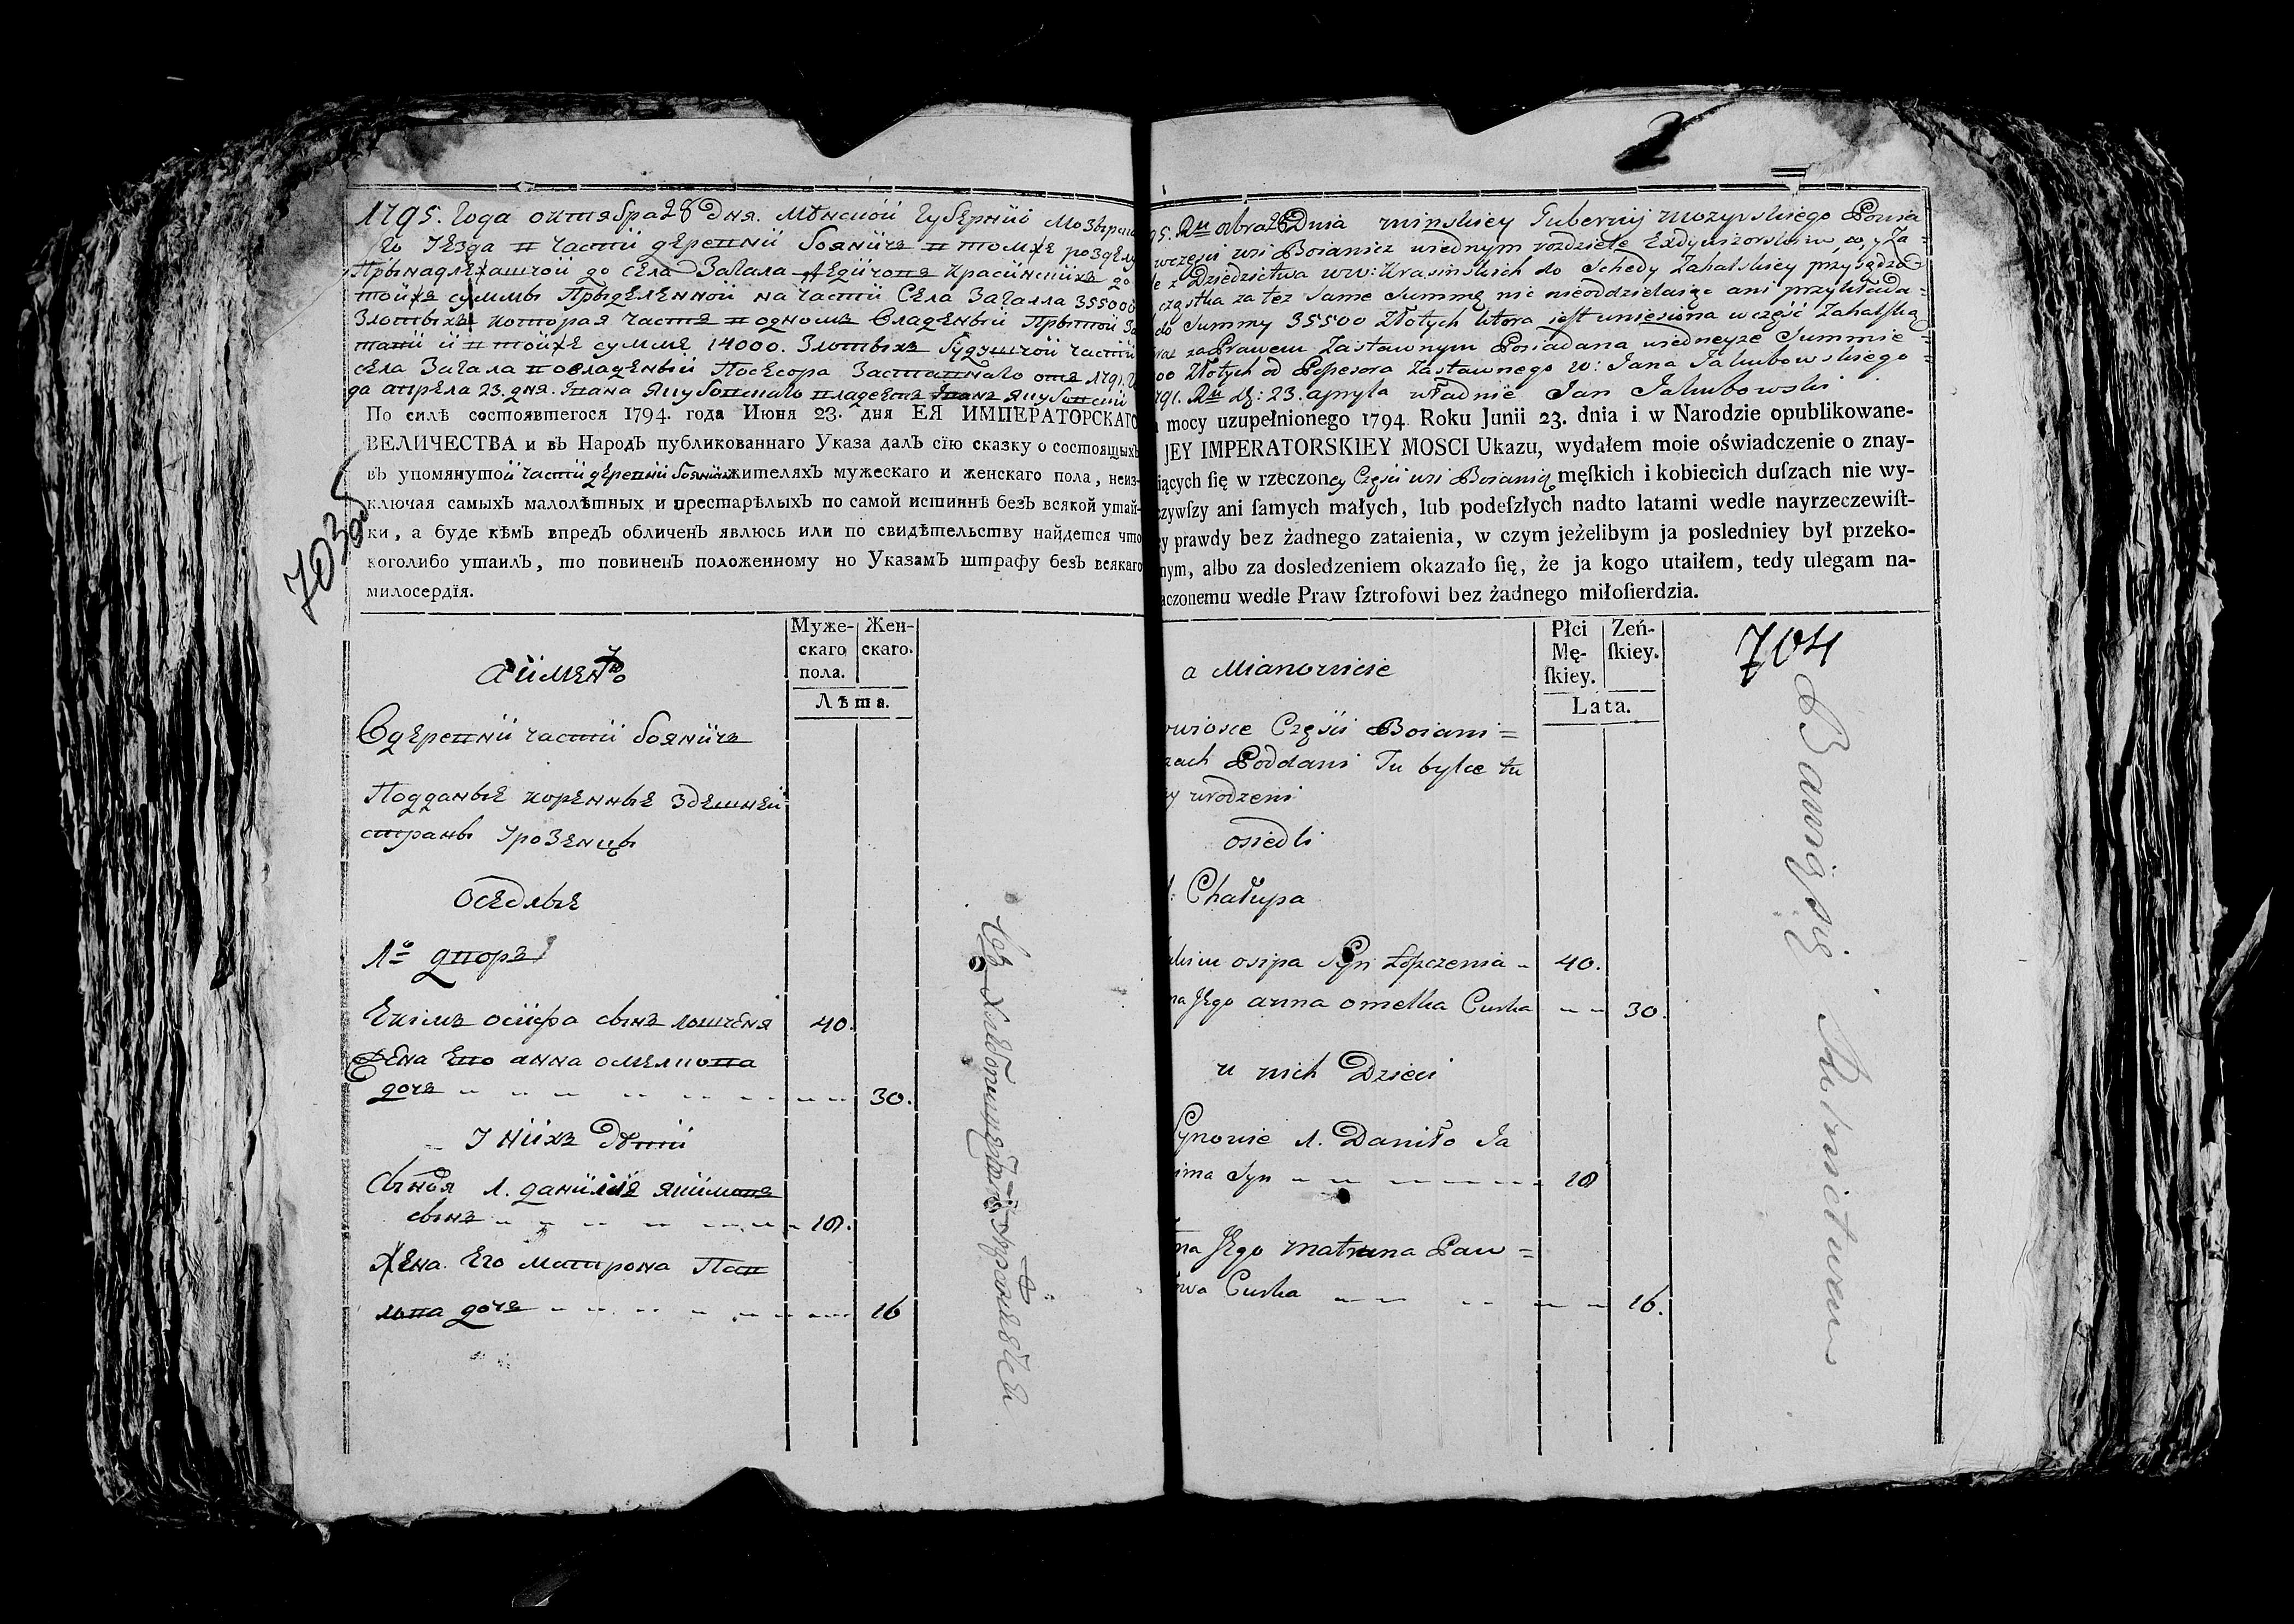 1795. Года октября 28 дня. Мѣнской Губернїи Мозырско
го Уезда в части деревни Бояничъ в томже розделу
Прынадлежащой до села Загала Дедичовъ Красинскихъ 2º
тойже суммы Прыделенной на части Села Загалла 35500
Злотыхъ которая часть в одномъ Владеныи Прытой За
тани и в тойже сумме 14000. Злотыхъ будущой части
села Загала повладеныи Посесора Заставнаго отъ 1791. го
да апрела 23. дня. Ивана Якубовскаго владеетъ Иванъ Якубовский
По силѣ состоявшегося 1794. года Июня 23. дня ЕЯ ИМПЕРАТОРСКАГО
ВЕЛИЧЕСТВА и въ Народъ публикованнаго Указа далъ сїю сказку о состоящыхъ
въ упомянутой части деревни Боянич жителяхъ мужескаго и женскаго пола, неиз-
ключая самыхъ малолѣтных и престарѣлыхъ по самой истиннѣ безъ всякой утай-
ки, а буде кѣмъ впредъ обличенъ явлюсь или по свидѣтельству найдется что
коголибо утаилъ, то повиненъ положенному но Указамъ штрафу безъ всякаго
милосердїя.
703об
Муже-
скаго
пола.
Жен-
скаго.
Лѣта.
аименно
Вдеревни части Бояничъ
Подданые коренные здешней
страны Урозенцы
Оседлые
1º дворъ
Екимъ осифа сынъ лопченя 40.
Жена Его анна омелкова
дочъ 30.
У нихъ Дѣти
Сыновя 1. данило якимовъ
сынъ 18.
Жена Его матрона Пав
лова дочъ 16
95. Ru 8bra 28 Dnia minskiey Gubernij mozyrskiego Powia
wczęsci wsi Boianicz wiednym rozdziele Exdywizorskim, co, y Za=
z Dziedzictwa ww: Krasinskich do Schedy Zahalskiey przysądzo
cząstka za tez same Summę nic nieoddzielaiąc ani przykłada=
do Summy 35500 Złotych ktora iest uniesiona wczęsc Zahalską
raz za Prawem Zastawnym Posiadana wiedneyże Summie=
00 Złotych od Possesora Zastawnego w: Jana Jakubowskiego=
791. Ru dg: 23. apryla władnie Jan Jakubowski
mocy uzupełnionego 1794. Roku Junii 23. dnia i w Narodzie opublikowane-
JEY IMPERATORSKIEY MOSCI Ukazu, wydałem moie oświadczenie o znay-
iących ſię w rzeczoney Częsci wsi Boianicz męſkich i kobiecich duſzach nie wy-
czywſzy ani ſamych małych, lub podeſzłych nadto latami wedle nayrzeczewiſt-
y prawdy bez żadnego zataienia, w czym jeżelibym ja posledniey był przeko-
nym, albo za dosledzeniem okazało ſię, że ja kogo utaiłem, tedy ulegam na-
aczonemu wedle Praw ſztrofowi bez żadnego miłoſierdzia.
Płci
Mę-
ſkiey.
Zeń-
ſkiey.
Lata.
704
a Mianowicie
wiosce Częsci Boiani=
zach Poddani Tu bylce tu
y urodzeni
osiedli
Chałupa
kim osipa Syn Łopczenia 40.
na Jego anna omelka Curka 30.
u nich Dzieci
Synowie 1. Daniło Ja
ima Syn 18
na Jego Matruna Paw=
owa Curka 16.
Bawią się Rolnictwem